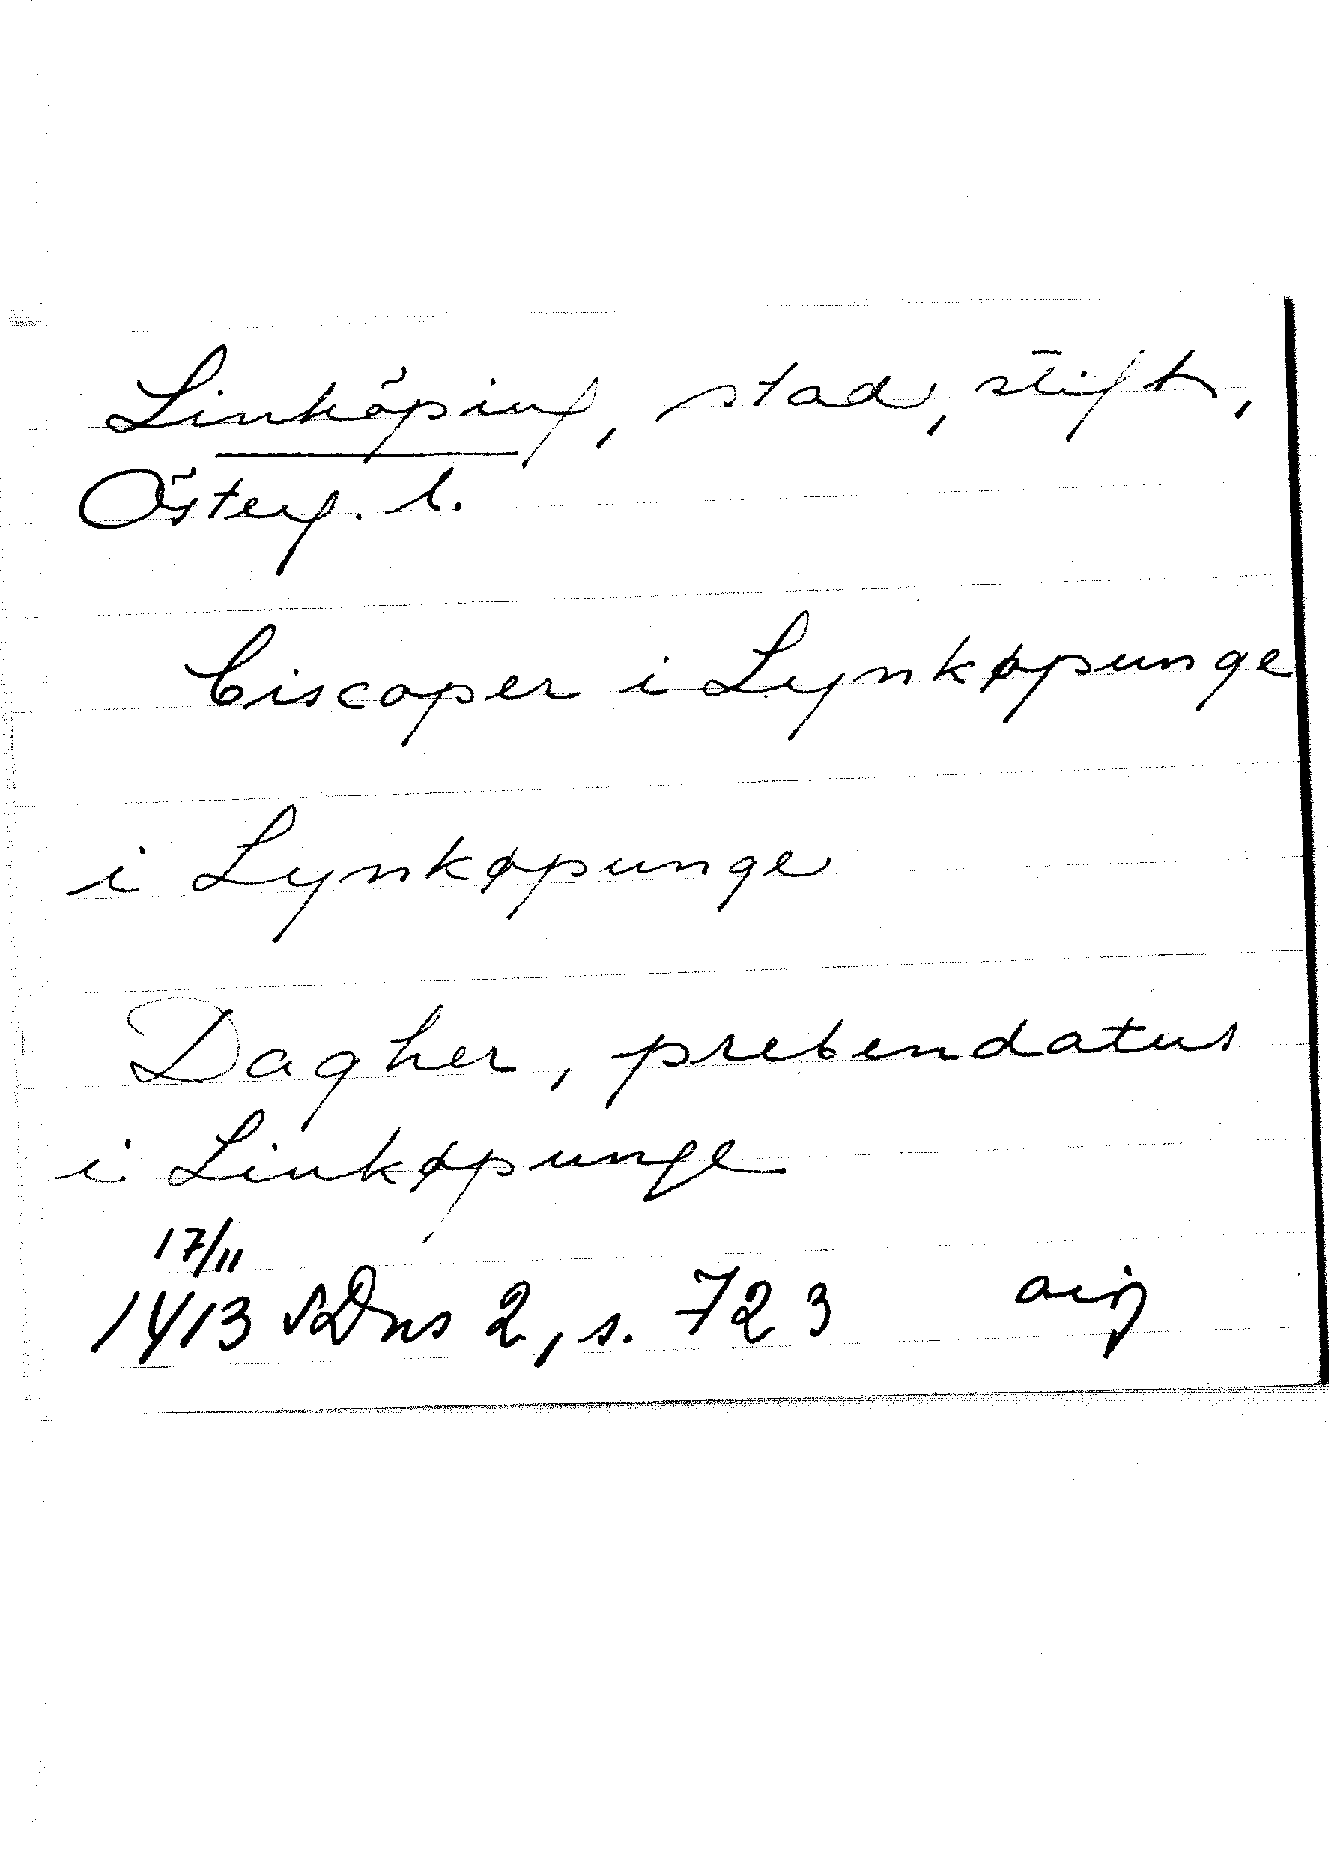 Linköping, stad, stift,
Österg. l.
biscoper i Lynkøpunge
i Lynkøpunge
Dagher, prebendatus
i Linkøpunge
17/11
1413 SDns 2, s. 723 orig